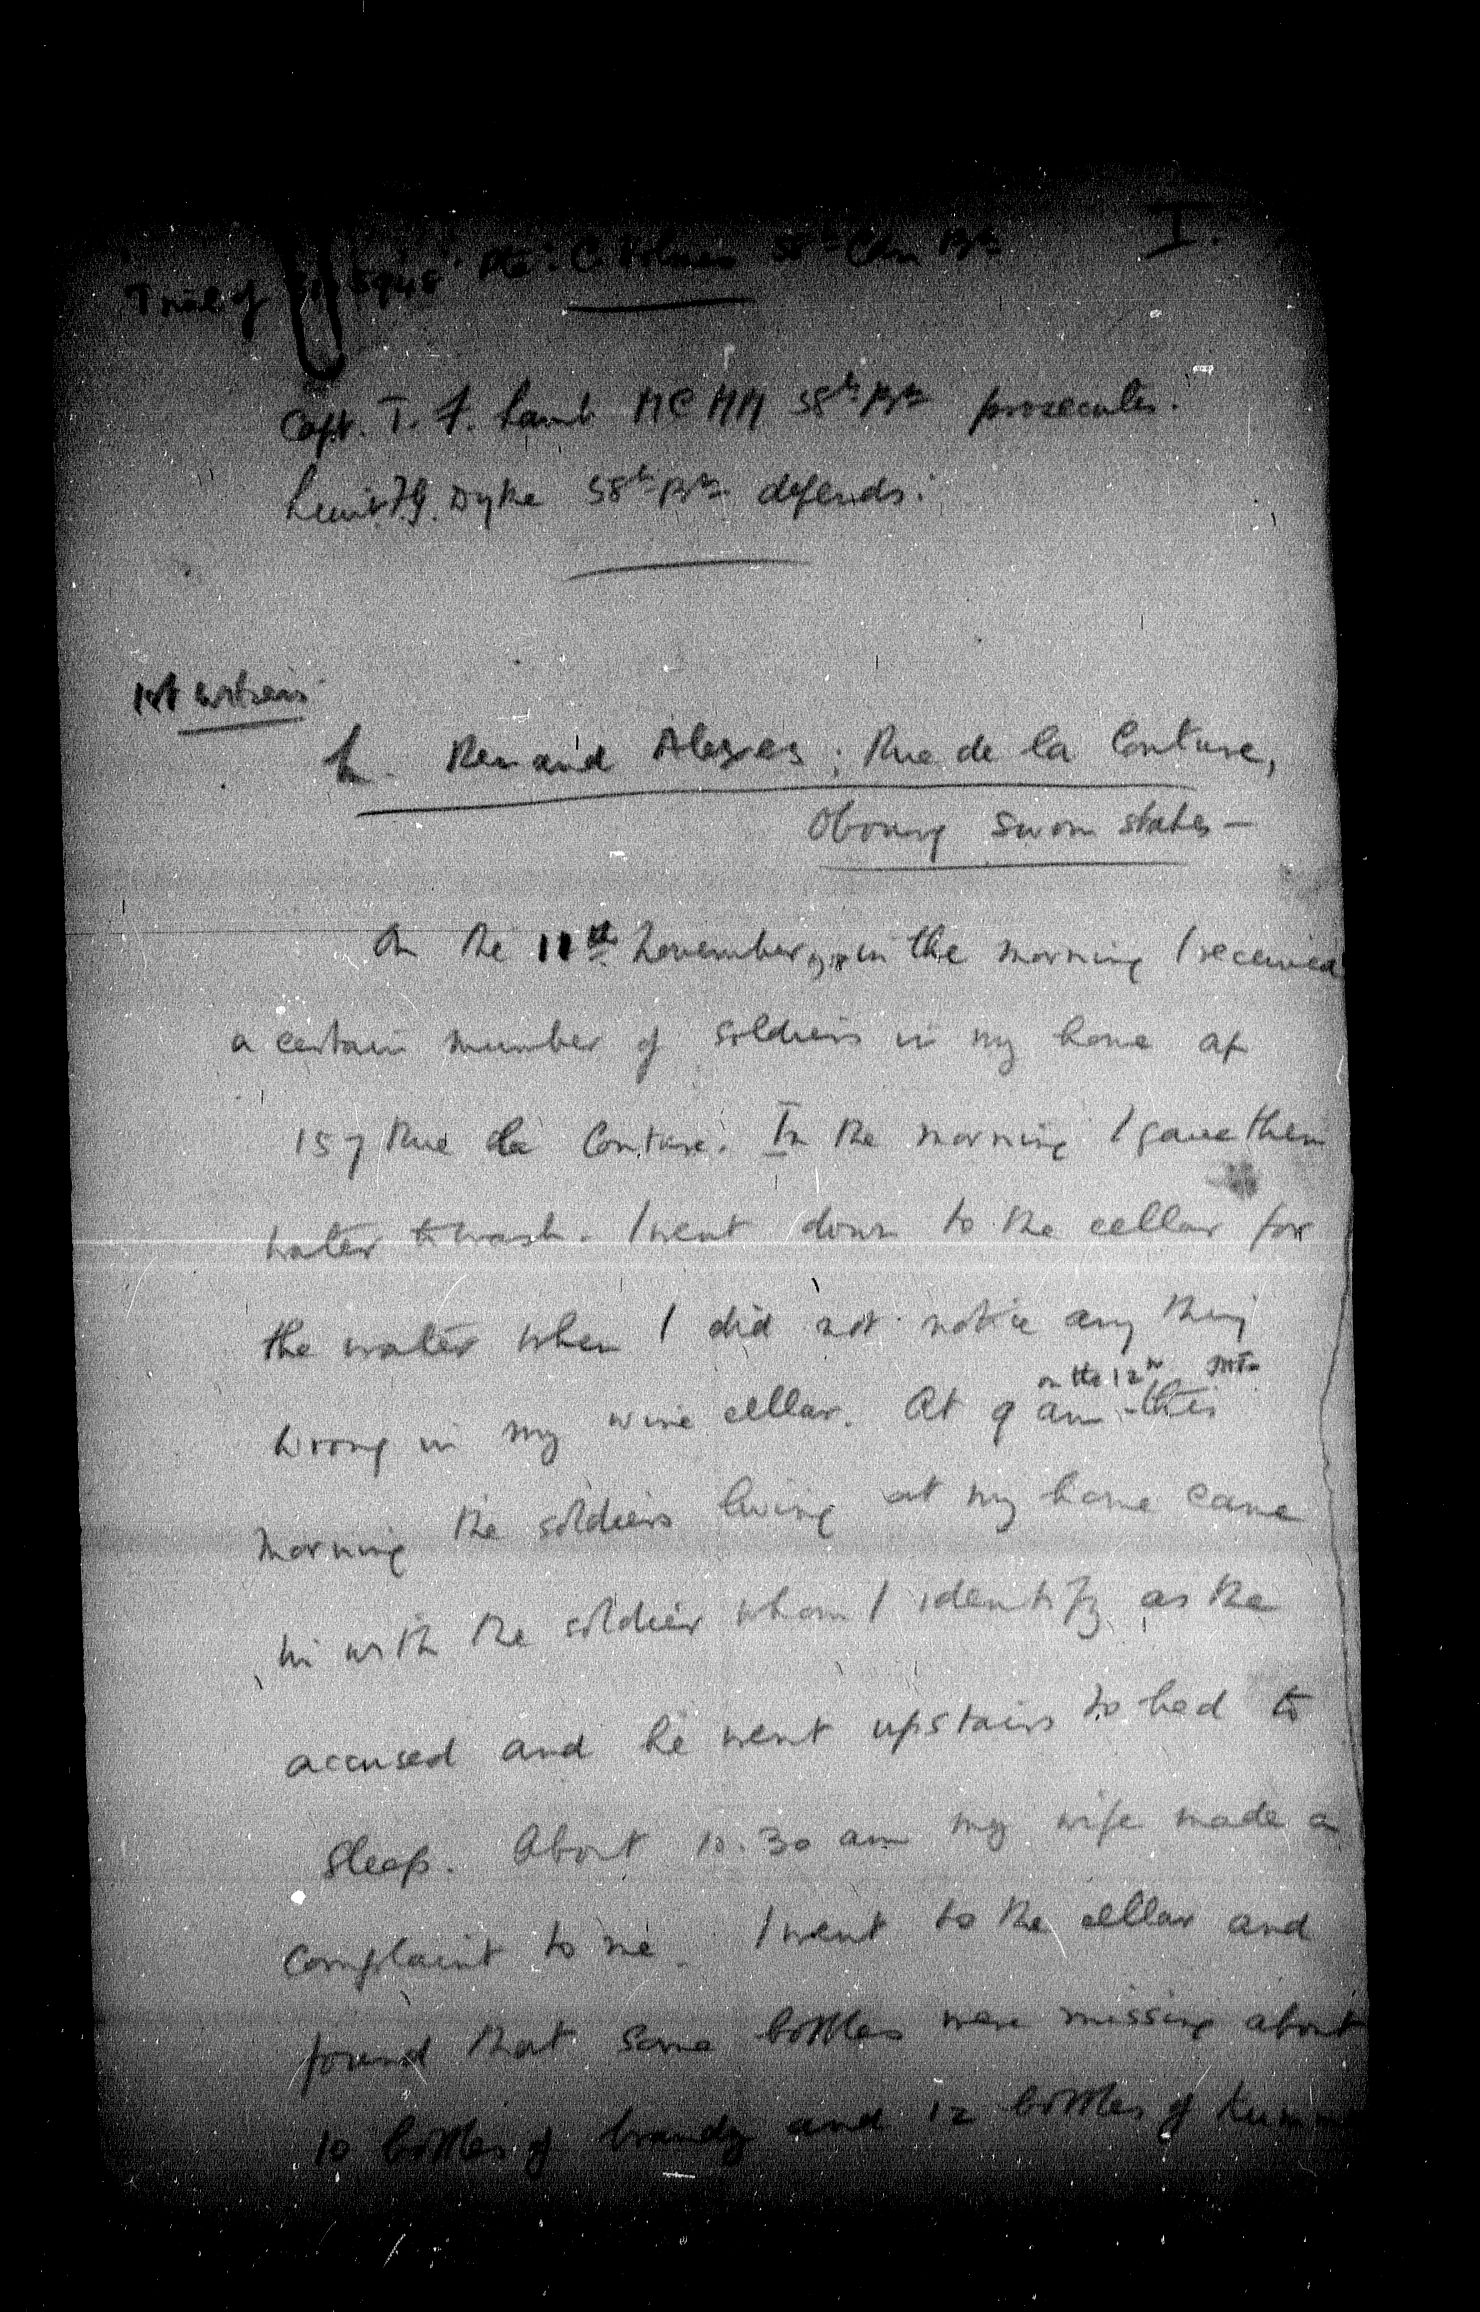 I.
Trial of Pte. C. 58th Cdn Bn
Capt. T. F. Lamb MC MM 58th Bn prosecutes.
Lieut F.G. Dyke 58th Bn defends.
1st witness
M. Renard Alexes; Rue de la Couture,
Obourg sworn states —
On the 11th November, in the morning I received
a certain number of soldiers in my home at
157 Rue la Couture. In the morning I gave them
water to wash. I went down to the cellar for
the water when I did not notice any thing
on the 12th
wrong in my wine cellar. At 9 am this
morning the soldiers living at my home came
in with the soldier whom I identify as the
accused and he went upstairs to bed to
sleep. About 10.30 am my wife made a
complaint to me. I went to the cellar and
found that some bottles were missing about
10 bottles of brandy and 12 bottles of